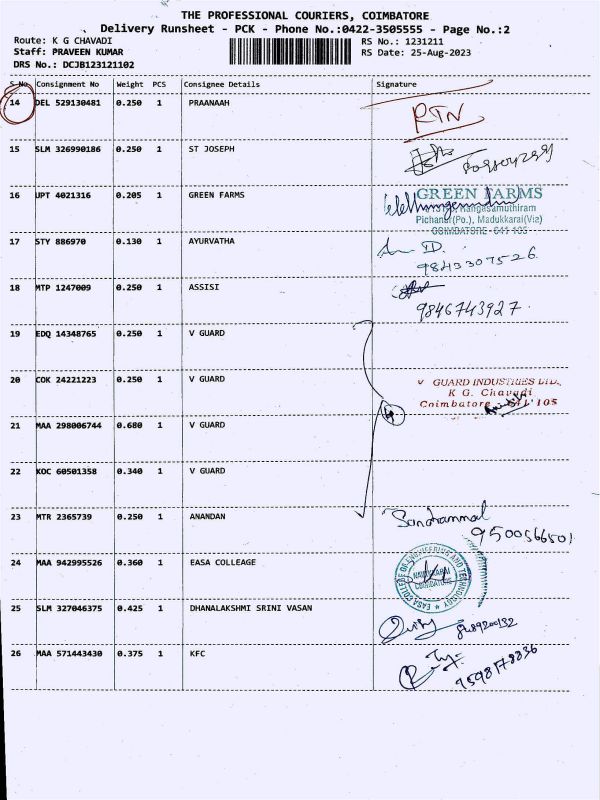 THE PROFESSIONAL COURIERS, COIMBATORE
Delivery Runsheet - PCK - Phone No.:0422-3505555 - Page No.:2
Route: K G CHAVADI RS No.: 1231211
Staff: PRAVEEN KUMAR RS Date: 25-Aug-2023
DRS No.: DCJB123121102
S No Consignment No Weight PCS Consignee Details Signature
14 DEL 529130481 0.250 1 PRAANAAH RTN
15 SLM 326990186 0.250 1 ST JOSEPH
16 JPT 4021316 0.205 1 GREEN FARMS GREEN FARMS
Rangasamuthiram
Pichanur(Po.), Madukkarai(Via)
COIMBATORE - 641 105
17 STY 886970 0.130 1 AYURVATHA
9843307526
18 MTP 1247009 0.250 1 ASSISI
9846743927
19 EDQ 14348765 0.250 1 V GUARD
20 COK 24221223 0.250 1 V GUARD V GUARD INDUSTRIES LTD.,
K G. Chavadi
Coimbatore 105
21 MAA 298006744 0.680 1 V GUARD
22 KOC 60501358 0.340 1 V GUARD
23 MTR 2365739 0.250 1 ANANDAN
9500566501
24 MAA 942995526 0.360 1 EASA COLLEAGE EASA COLLEGE OF ENGINEERING AND TECHNOLOGY
25 SLM 327046375 0.425 1 DHANALAKSHMI SRINI VASAN
26 MAA 571443430 0.375 1 KFC
9598178836